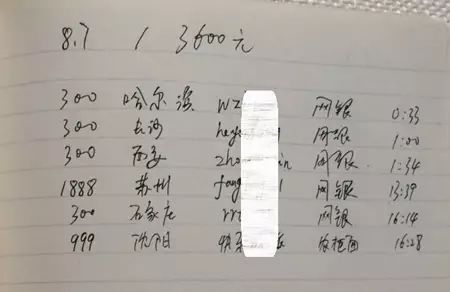 8.7 / 3600元
300 哈尔滨 wz 网银 0:33
300 长沙 he 网银 1:00
300 zho in 网银 1:34
1888 苏州 fang 网银 13:39
300 石家庄 网银 16:14
999 沈阳 16:28